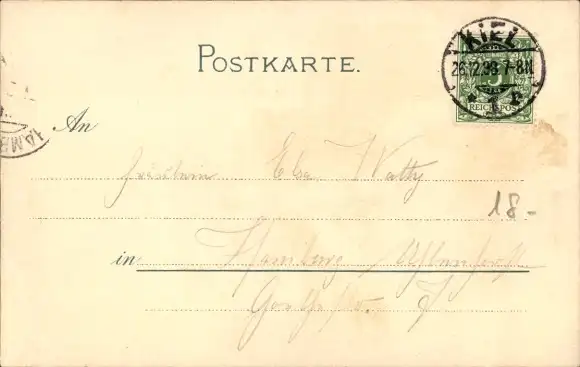 POSTKARTE.
KIEL
26.12.98 7-8N.
REICHSPOST
An
Fräulein Elsa Watty
18-
in Hamburg Uhlenhorst